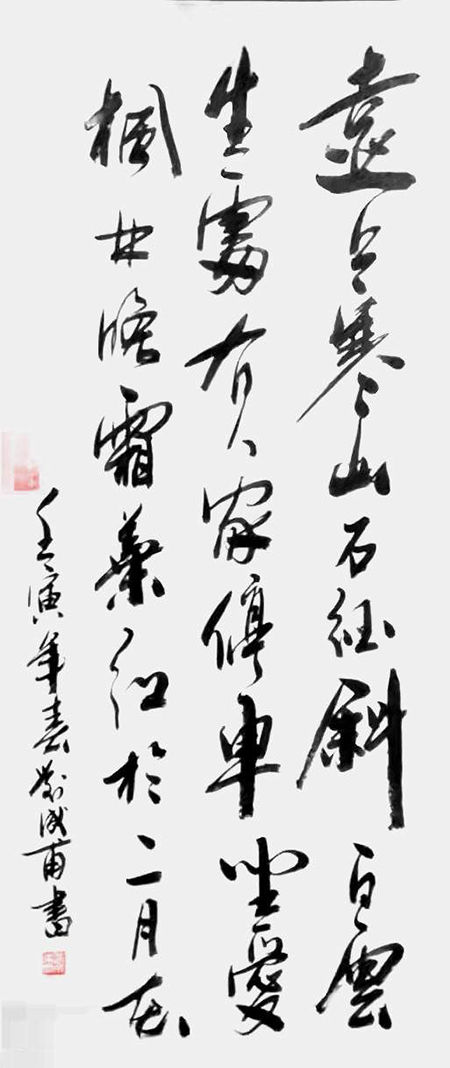 遠上寒山石徑斜白雲
生處有人家停車坐愛
楓林晚霜葉紅於二月花
壬寅年春 成甫書